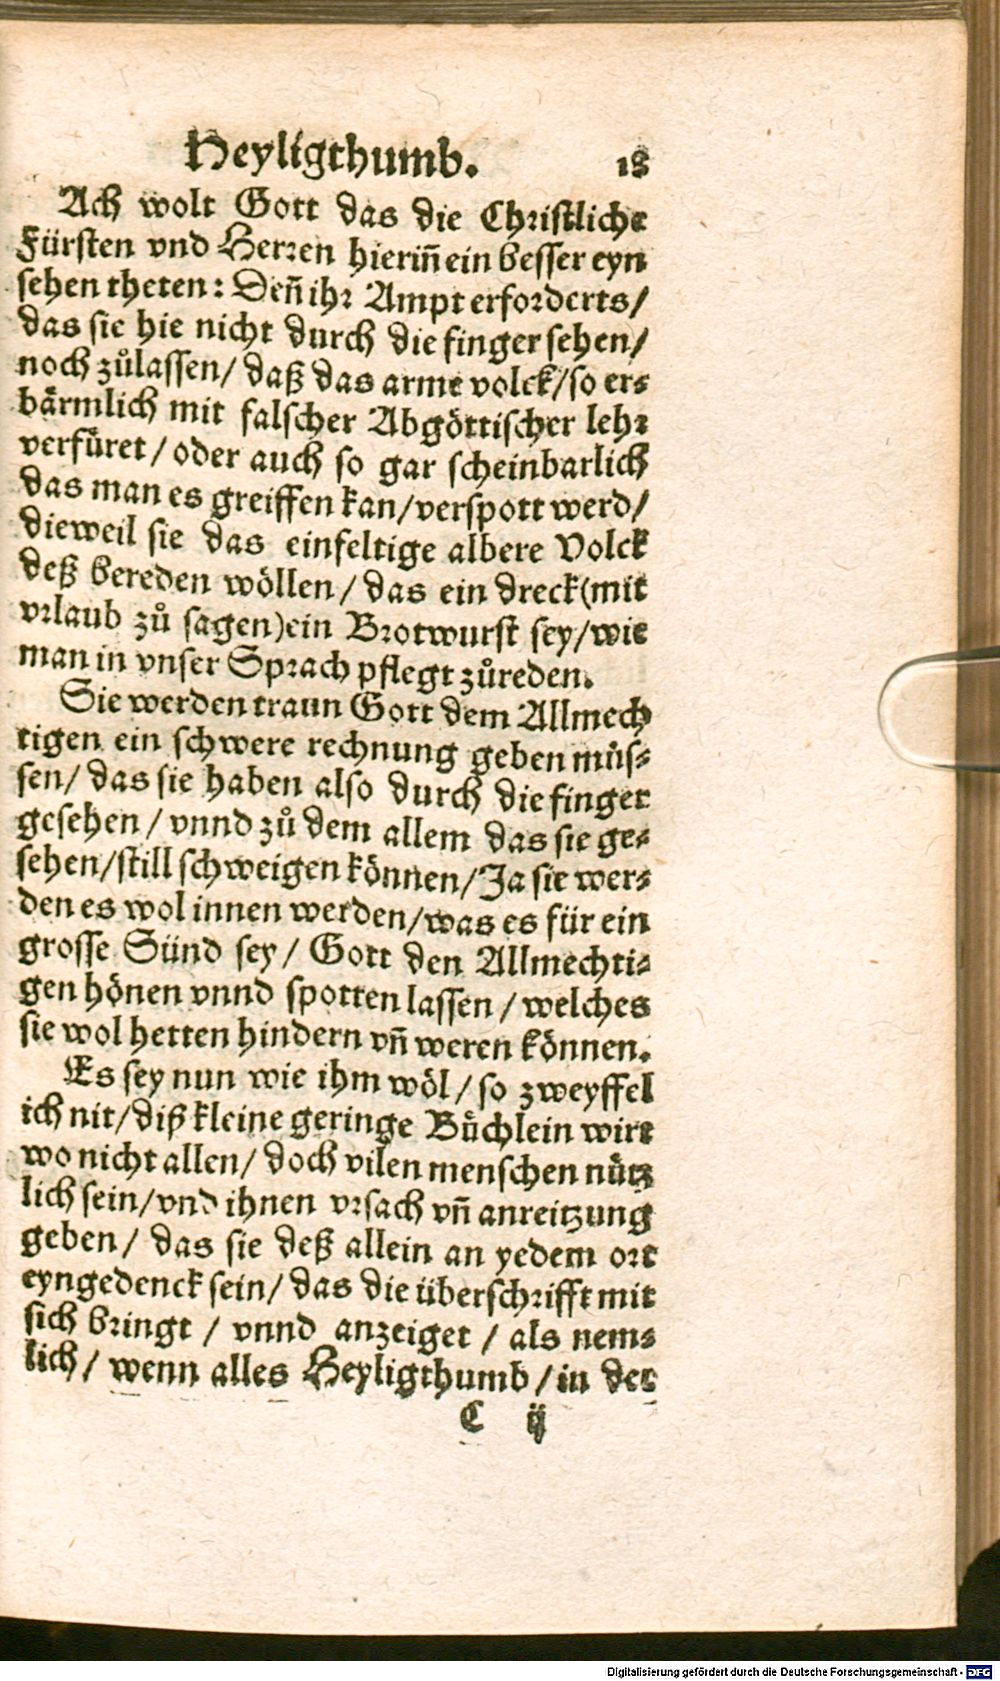 Heyligthumb. 18
Ach wolt Gott das die Christliche
Fürsten vnd Herren hieriñ ein besser eyn
sehen theten: Deñ ihr Ampt erforderts/
das sie hie nicht durch die finger sehen/
noch zůlassen/ daß das arme volck/ so er⸗
bärmlich mit falscher Abgöttischer lehr
verfüret/ oder auch so gar scheinbarlich
das man es greiffen kan/ verspott werd/
dieweil sie das einfeltige albere Volck
deß bereden wöllen/ das ein dreck (mit
vrlaub zů sagen) ein Brotwurst sey/ wie
man in vnser Sprach pflegt zůreden.
Sie werden traun Gott dem Allmech
tigen ein schwere rechnung geben müs⸗
sen/ das sie haben also durch die finger
gesehen/ vnnd zů dem allem das sie ge⸗
sehen/ still schweigen können/ Ja sie wer⸗
den es wol innen werden/ was es für ein
grosse Sünd sey/ Gott den Allmechti⸗
gen hönen vnnd spotten lassen/ welches
sie wol hetten hindern vñ weren können.
Es sey nun wie ihm wöl/ so zweyffel
ich nit/ diß kleine geringe Büchlein wirt
wo nicht allen/ doch vilen menschen nütz
lich sein/ vnd ihnen vrsach vñ anreitzung
geben/ das sie deß allein an yedem ort
eyngedenck sein/ das die überschrifft mit
sich bringt/ vnnd anzeiget/ als nem⸗
lich/ wenn alles Heyligthumb/ in der
C ij
Digitalisierung gefördert durch die Deutsche Forschungsgemeinschaft - DFG